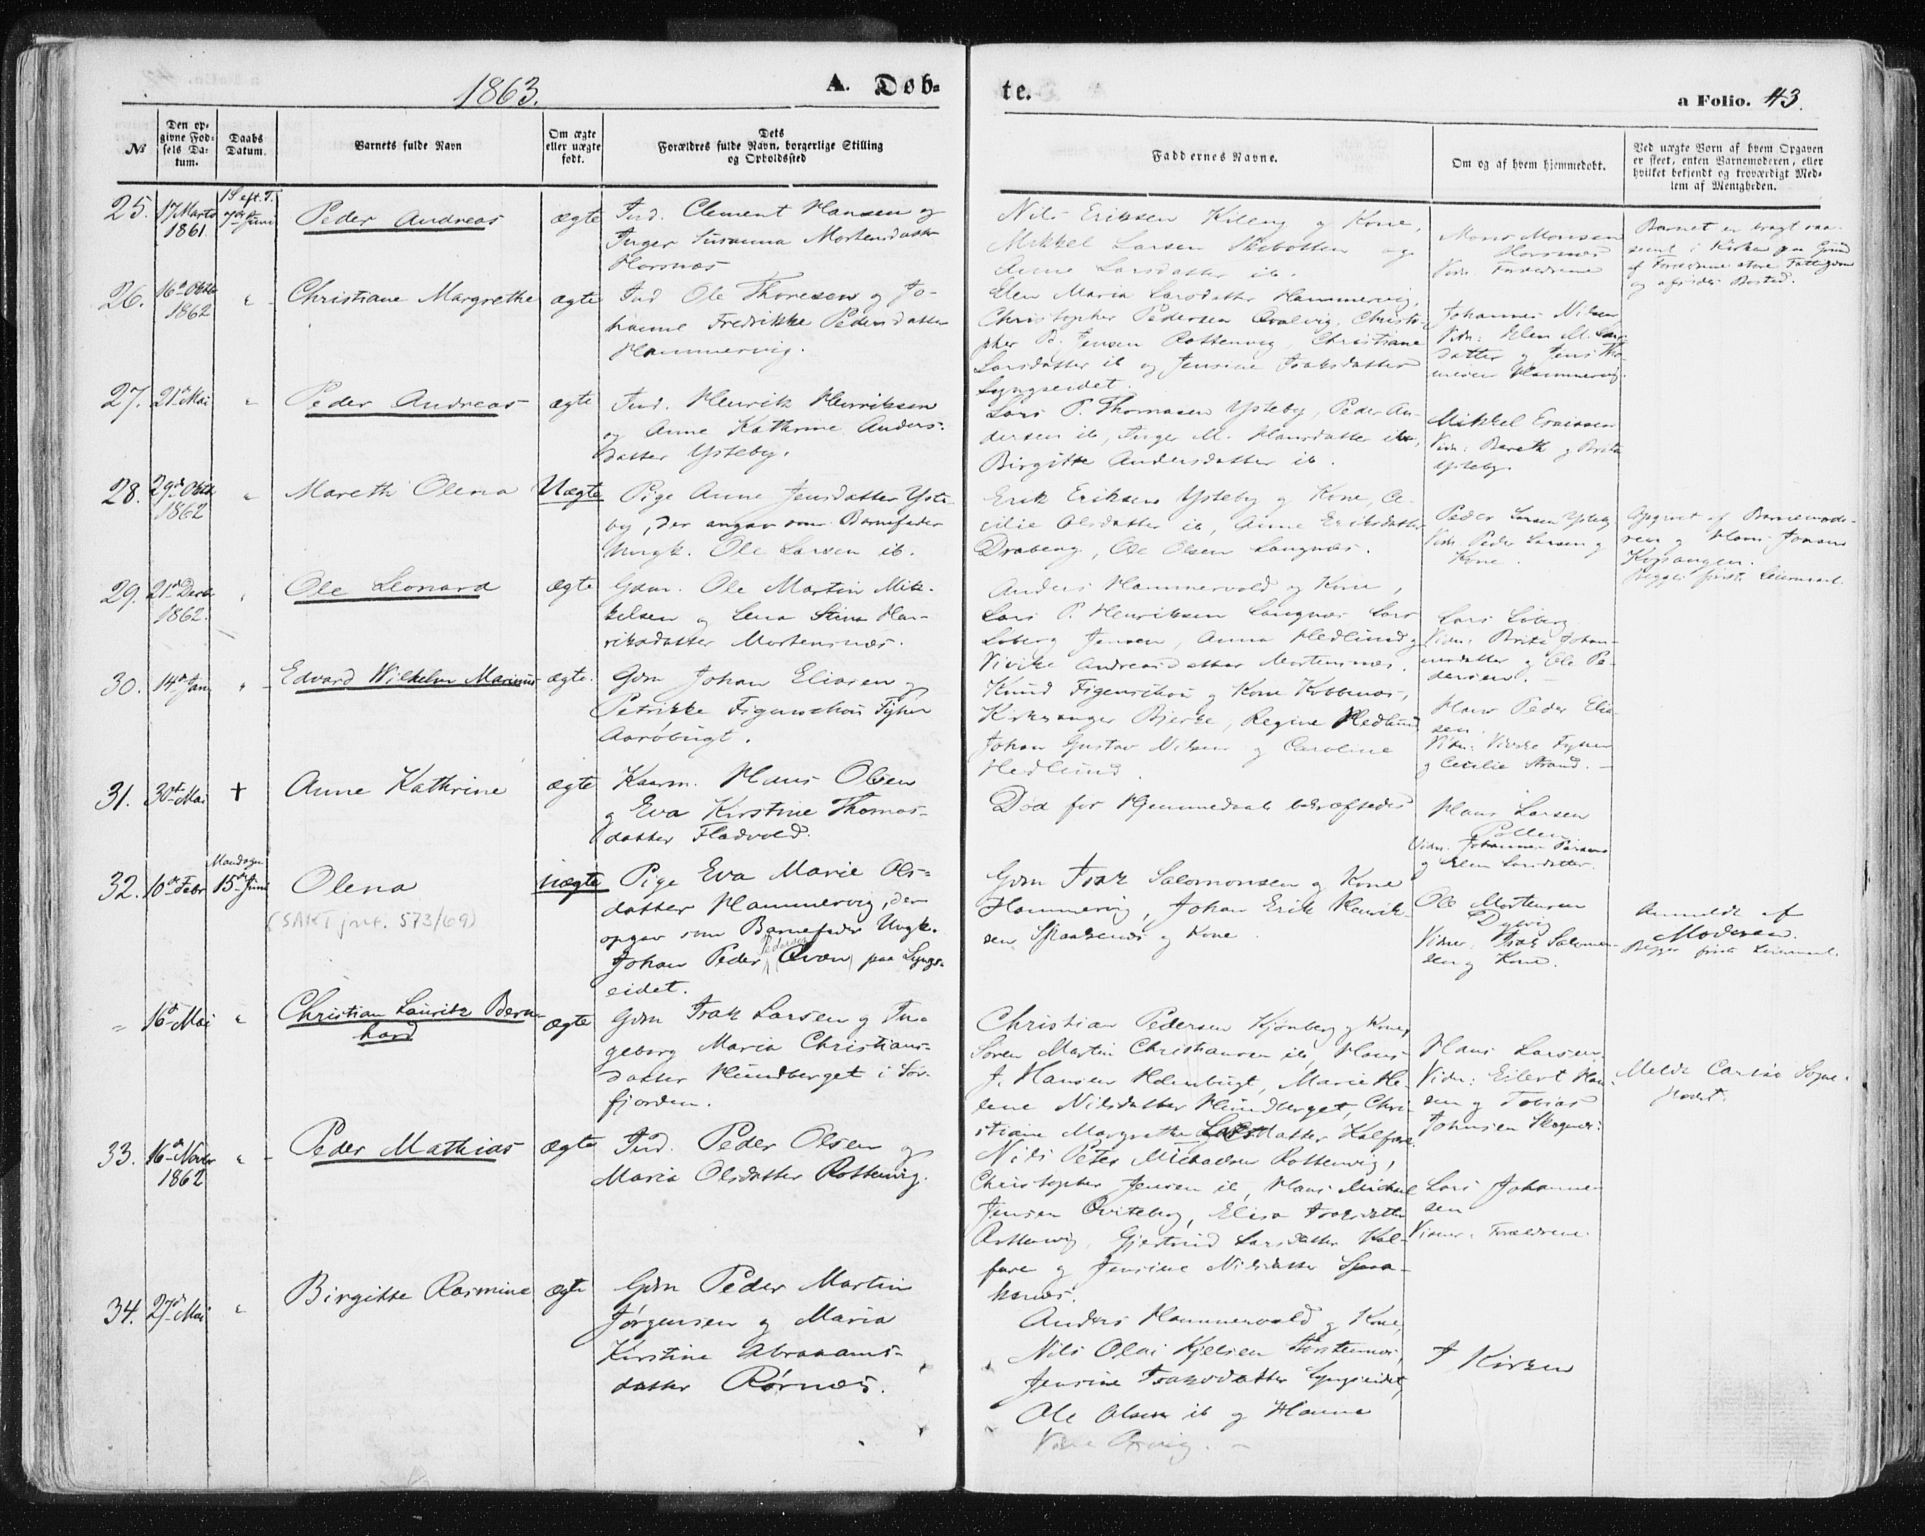 1863.
A. Døb-
te.
a Folio. 43.
№
Den op-
givne Fød-
sels Da-
tum.
Daabs
Datum.
Barnets fulde Navn
Om ægte
eller uægte
født.
Dets
Forældres fulde Navn, borgerlige Stilling
og Opholdssted
Faddernes Navne.
Om og af hvem hjemmedøbt.
Ved uægte Børn af hvem Opgaven
er skeet, enten Barnemoderen, eller
hvilket bekjendt og troværdigt Med-
lem af Menigheden.
25.
17 Marts
1861.
1 S eft. T.
7de Juni
Peder Andreas
ægte
Ind. Clement Hansen og
Inger Susanna Mortensdatter
Horsnæs
Nils Eriksen Kileng og Kone,
Mikkel Larsen Skibotten og
Anne Larsdatter ib.
Mons Monsen
Horsnæs
Vidn. Forældrene
Barnet er bragt saa
seent i Kirken paa Grund
af Forældrene store Fattigdom
og afsides Bosted.
26.
16de Okto
1862
"
Christiane Margrethe
ægte
Ind Ole Thoresen og Jo-
hanne Fredrikke Pedersdatter
Hammervig.
Elen Maria Larsdatter Hammervig,
Christopher Pedersen Qvalvig, Christo-
pher P. Jensen Rottenvig, Christiane
Larsdatter ib og Jensine Isaksdatter
Lyngseidet.
Johannes Nilsen
Vidn: Elen M. Lars-
datter og Jens Tho-
mesen Hammervig.
27.
21de Mai
"
Peder Andreas
ægte
Ind. Henrik Henriksen
og Anne Kathrine Anders-
datter Ysteby.
Lars P. Thomasen Ysteby, Peder An-
dersen ib, Inger M. Hansdatter ib,
Birgitte Andersdatter ib.
Mikkel
Vidn: Bereth og Brita
Ysteby.
28.
29de Okto
1862
"
Mareth Olena
Uægte
Pige Anne Jensdatter Yste-
by, der angav som Barnefader
Ungk. Ole Larsen ib.
Erik Eriksen Ysteby og Kone, Ce-
cilie Olsdatter ib, Anne Eriksdatter
Draberg, Ole Olsen Langnæs.
Peder Larsen Ysteby
Vidn. Peder Larsen og
Kone.
Opgivet af Barnemode-
ren og Hans Jonsen
Kopangen.
Begges første Leiermaal.
29.
21de Decb
1862.
"
Ole Leonard
ægte
Gdm. Ole Martin Mik-
kelsen og Lena Stina Hen-
riksdatter Mortensnæs.
Anders Hammervold og Kone,
Lars P. Henriksen Langnæs Lars
Loberg Jensen, Anna Hedlund og
Vivike Andreasdatter Mortensnæs.
Lars Loberg
Vidn: Brita Johan-
nesdatter og Ole Pe-
dersen. –
30.
14de Jan
"
Edvard Wilhelm Marinus
ægte.
Gdm Johan Eliasen og
Petrikke Figenschou Tyhn
Aarøbugt.
Knud Figenschou og Kone Kobbenæs,
Kirkesanger Bjerke, Regine Hedlund
Johan Gustav Nilsen og Caroline
Hedlund.
Hans Peder Elia-
sen.
og Cecilie Strand. –
31.
30te Mai
+
Anne Kathrine
ægte
Kaarm. Hans Olsen
og Eva Kirstine Thomas-
datter Fladvold.
Død før Hjemmedaab bekræftedes
Hans Larsen
Pollen.
og Elen Larsdatter.
32.
10de Febr
Mandagen
15de Juni
Olena
(SAKT jnr. 573/69)
uægte
Pige Eva Marie Ols-
datter Hammervig, der
opgav som Barnefader Ungk.
Johan Peder (Pedersen) Qvæn paa Lyngs-
eidet.
Gdm Isak Salomonsen og Kone
Hammervig, Johan Erik Henrik-
sen Spaakenæs og Kone
Ole Mortensen
Dybvig
Vidner: Isak Salomon-
sen og Kone.
Anmeldt af
Moderen.
Begges første Leiermaal.
"
16de Mai
"
Christian Lauritz Bern-
hard
ægte
Gdm Isak Larsen og In-
geborg Maria Christians-
datter Hundberget i Sør-
fjorden.
Christian Pedersen Kjønberg og Kone,
Søren Martin Christiansen ib, Hans
J. Hansen Holmbugt, Marie He-
lene Nilsdatter Hundberget, Chri-
stiane Margrethe Larsdatter Kalfare
Hans Larsen
Vidn: Eilert Han-
sen og Tobias
Johnsen Skognæs:
Meldt Carlsø Sogne-
kald.
33.
16de Novbr
1862
"
Peder Mathias
ægte
Ind. Peder Olsen og
Maria Olsdatter Rottenvig.
Nils Peter Michaelsen Rottenvig,
Christopher Jensen ib, Hans Michael
Jensen Qviteberg, Elisa Isaksdatter
Rottenvig, Gjertrud Larsdatter Kal-
fare og Jensine Nilsdatter Spaa-
kenæs.
Lars Johanne-
sen
Vidner: Forældrene
34.
27de Mai
"
Birgitte Rasmine
ægte
Gdm Peder Martin
Jørgensen og Maria
Kirstine Abraams-
datter Rørnæs.
Anders Hammervold og Kone,
Nils Olai Kjelsen Stortennæs,
Jensine Isaksdatter Lyngseidet,
Ole Olsen ib og Hanna
I Kirken